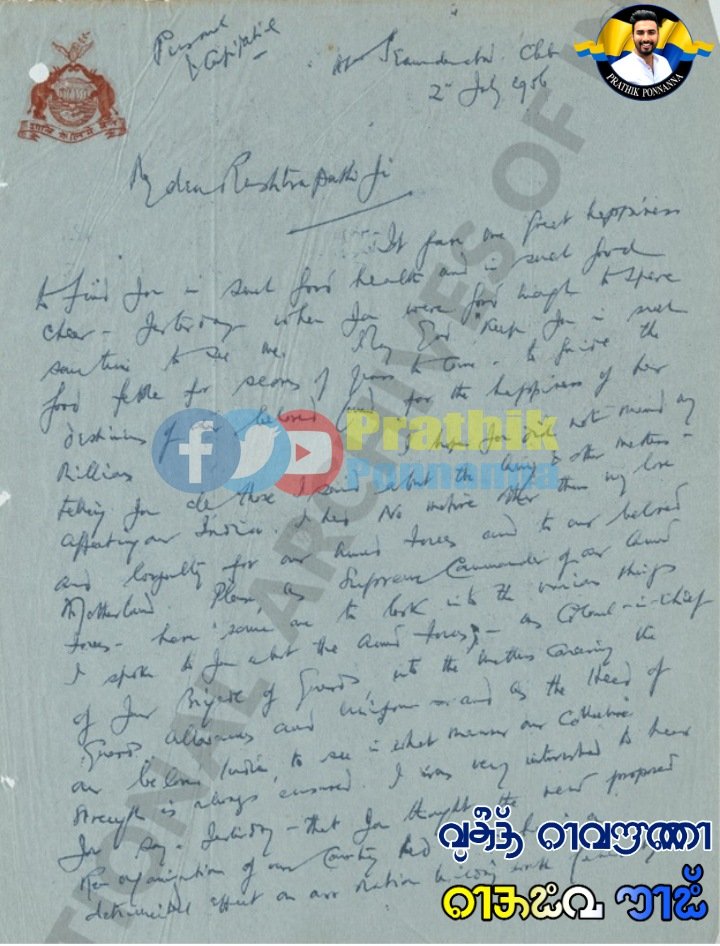 Personal
& Confidential
Secunderabad Club
2nd July 1956
PRATHIK PONNANNA
My dear Rashtrapathi Ji
It gave me great happiness
to find you in such good health and in such good
cheer - yesterday when you were good enough to spare
sometime to see me. May God keep you in such
good fettle for scores of years to come - to guide the
destinies of our beloved for the happiness of her
millions I hope you did not mind my
telling you all those I said about the Army & other matters -
affecting our India. I had no motive other than my love
and loyalty for our Armed Forces and to our beloved
Motherland. Please, as Supreme Commander of our Armed
Forces - have some one to look into the various things
I spoke to you about the Armed Forces; - as Colonel-in-Chief
of your Brigade of Guards, into the matters concerning the
Guards allowances and uniform - and as the Head of
our beloved India, to see in what manner our collective
strength is always ensured. I was very interested to hear
you say - yesterday - that you thought the new proposed
Reorganization of our Country had
detrimental effect on our nation
Prathik
Ponnanna
TIONAL ARCHIVES OF IN